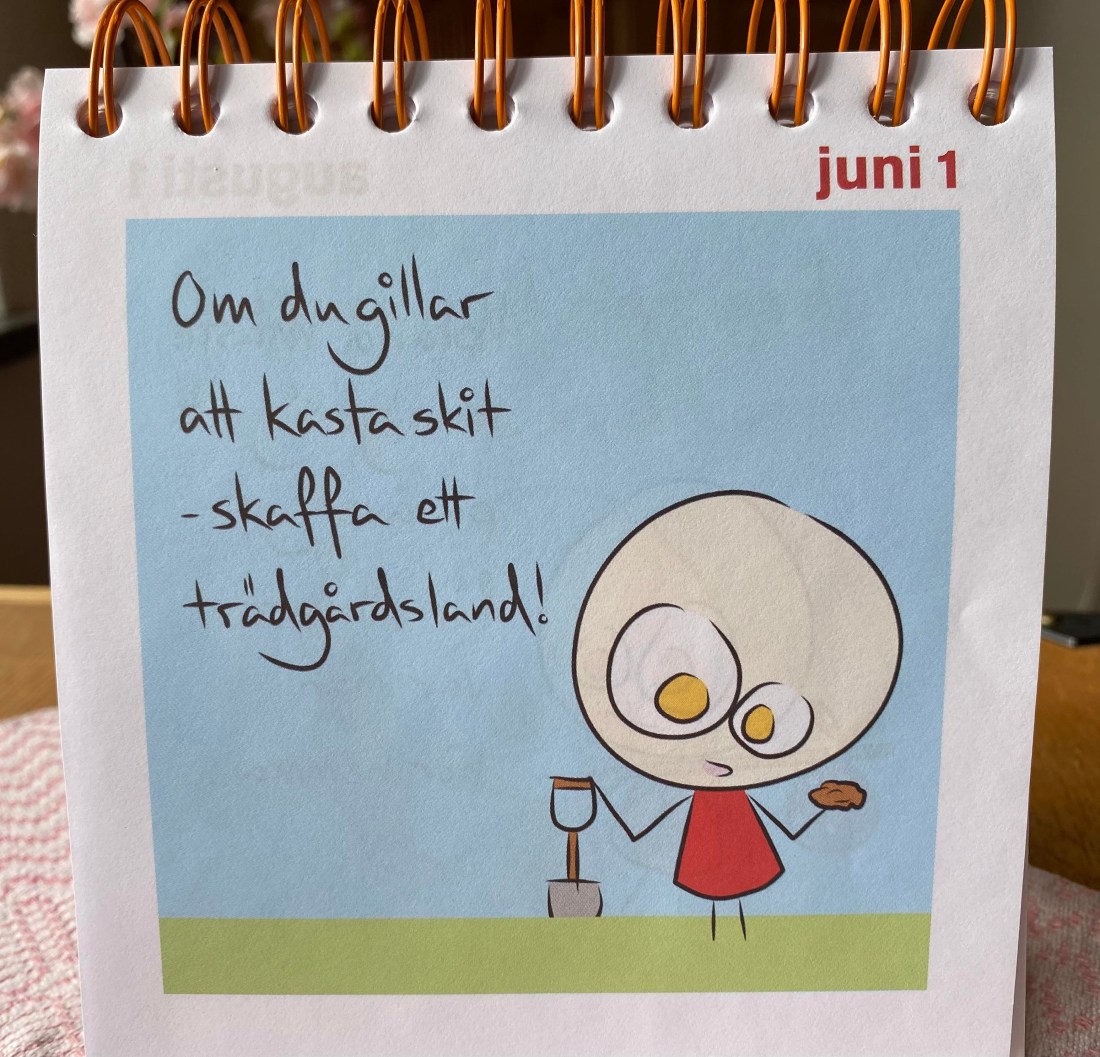 juni 1
augusti 1
Om du gillar
att kasta skit
-skaffa ett
trädgårdsland!